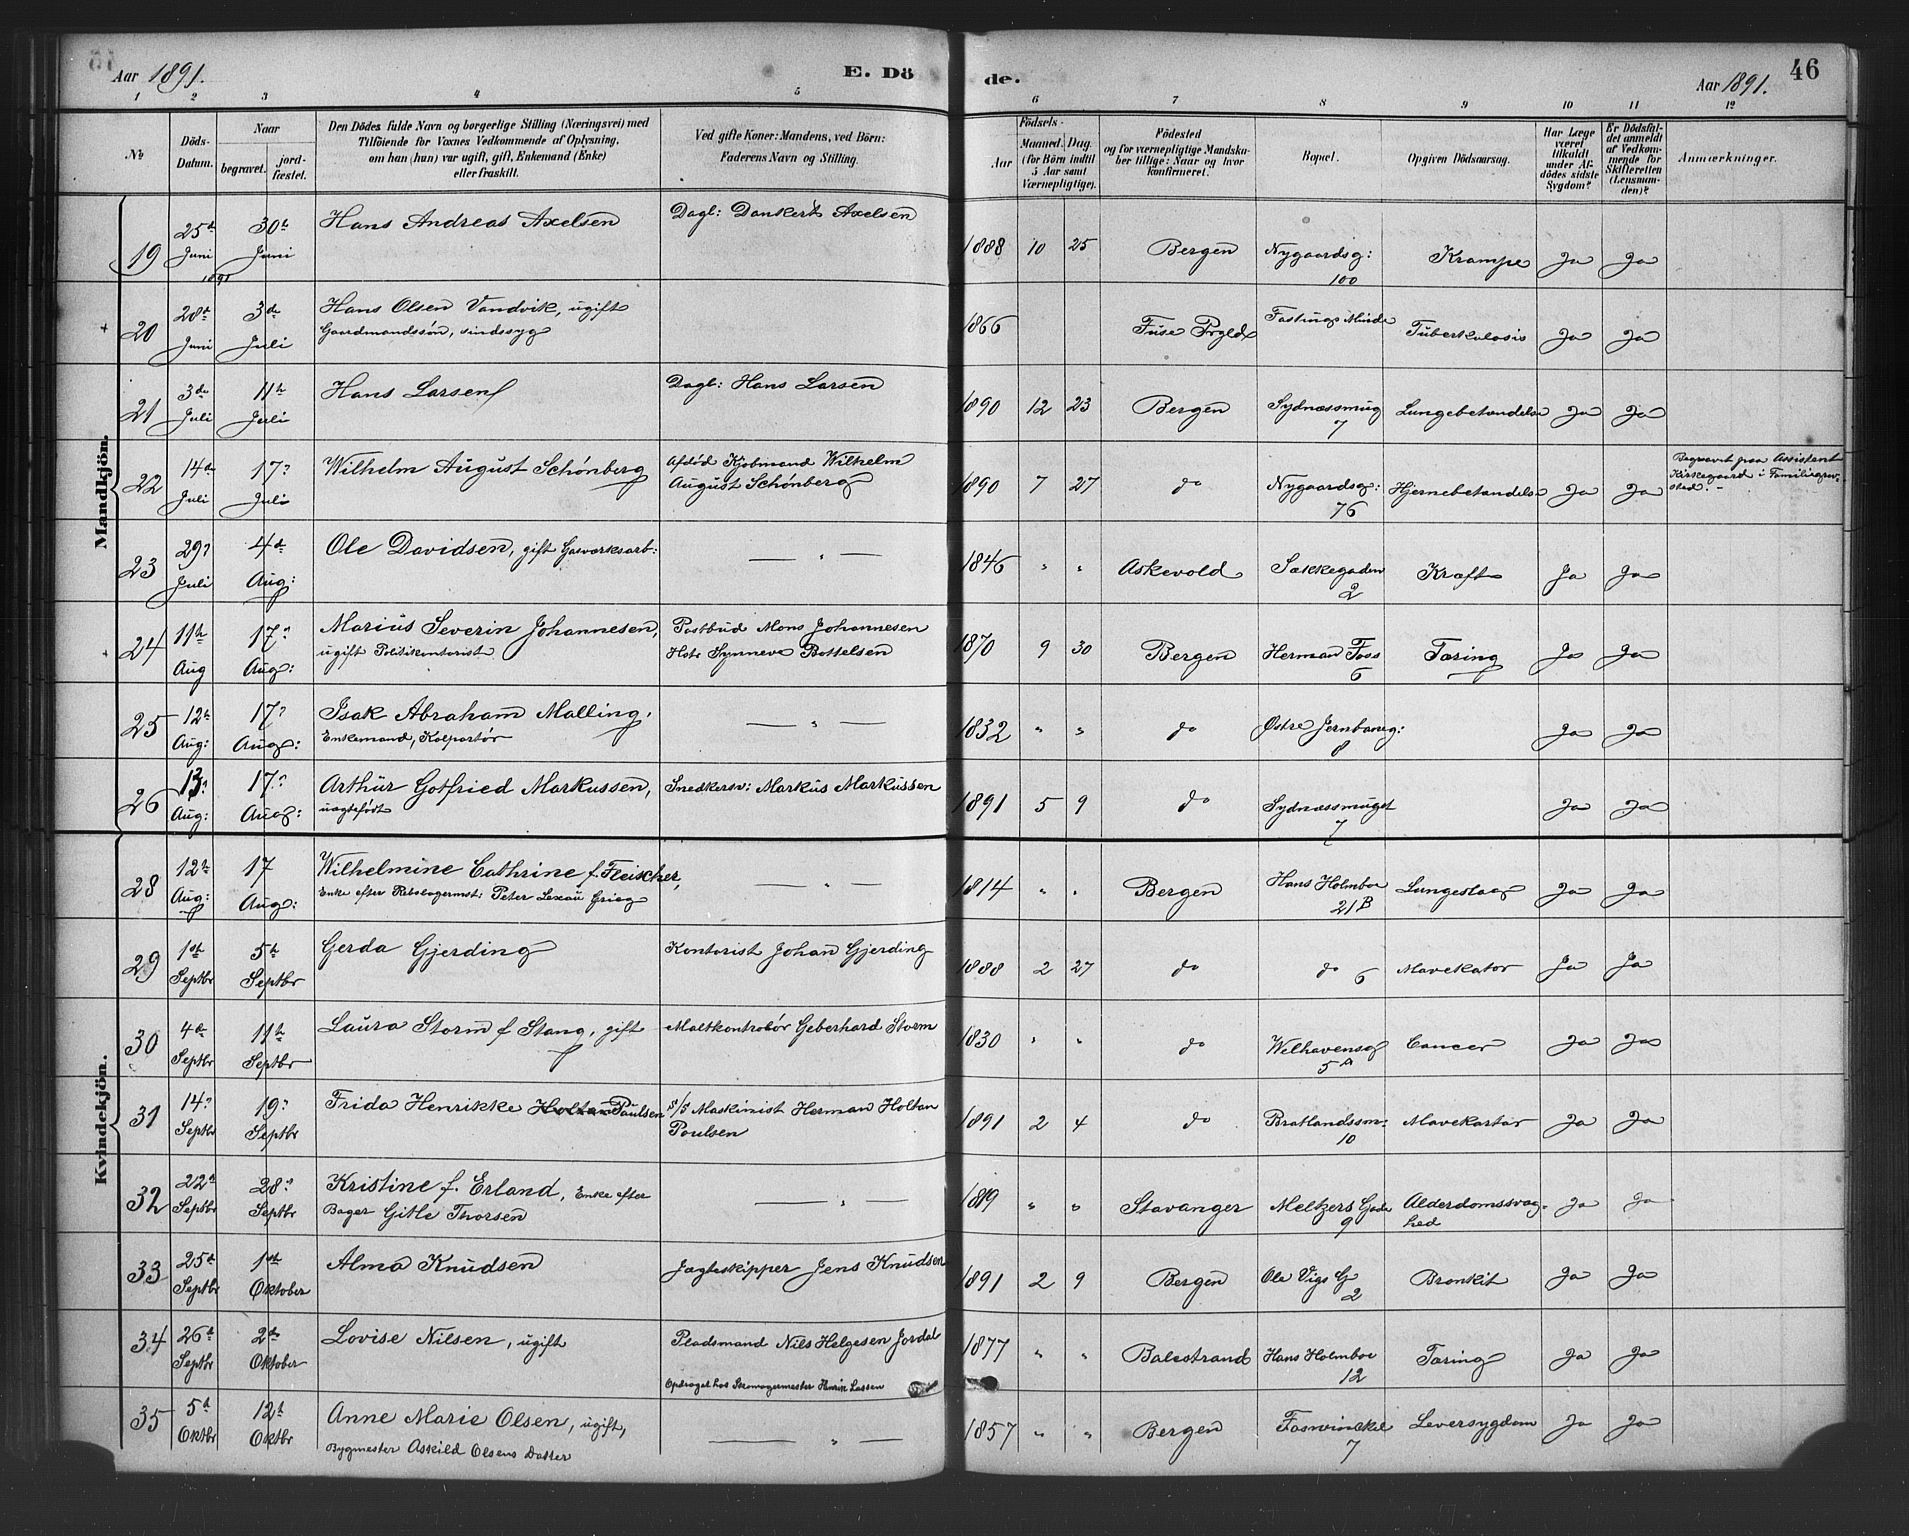 Aar 1891. E. Döde. Aar 1891. 46
1 2 3 4 5 6 7 8 9 10 11 12
No
Döds-Datum.
Naar
begravet. jord-fæstet.
Den Dödes fulde Navn og borgerlige Stilling (Næringsvei) med
Tilföiende for Voxnes Vedkommende af Oplysning,
om han (hun) var ugift, gift, Enkemand (Enke)
eller fraskilt.
Ved gifte Koner: Mandens, ved Börn:
Faderens Navn og Stilling.
Födsels-
Aar Maaned. Dag.
(for Börn indtil
5 Aar samt
Værnepligtige).
Födested
og for værnepligtige Mandska-
ber tillige: Naar og hvor
konfirmeret.
Bopæl.
Opgiven Dödsaarsag.
Har Læge
været
tilkaldt
under Af-
dödes sidste
Sygdom?
Er Dödsfal-
det anmeldt
af Vedkom-
mende for
Skifteretten
(Lensman-
den)?
Anmærkninger.
Mandkjön.
19 25d Juni 30te Juni 1891 Hans Andreas Axelsen Dagl: Dankert Axelsen 1888 10 25 Bergen Nygaardsg: 100 Krampe Ja Ja
20 28d Juni 3de Juli Hans Olsen Vandvik, ugift
Gaardmandssön, sindssyg 1866 Fuse Prgld Fastings Minde Tuberkulosis Ja Ja
21 3de Juli 11te Juli Hans Larsen Dagl: Hans Larsen 1890 12 23 Bergen Sydnæssmug 7 Lungebetændelse Ja Ja
22 14de Juli 17 Juli Wilhelm August Schönberg Afdöd Kjöbmand Wilhelm
August Schönberg 1890 7 27 do Nygaardsg: 76 Hjernebetændelse Ja Ja Begravet paa Assistent
Kirkegaard i Familiegrav-
sted.
23 29 Juli 4de Aug: Ole Davidsen, gift Gasværksarb: — " — 1846 " " Askevold Sækkegaden 2 Kræft Ja Ja
24 11te Aug 17 Aug: Marius Severin Johannesen,
ugift Politikontorist Postbud Mons Johannesen
Hstr Synneve Bottelsen 1870 9 30 Bergen Herman Foss 6 Tæring Ja Ja
25 12te Aug: 17 Aug: Isak Abraham Malling,
Enkemand, Kolportör — " — 1832 " " do Östre Jernbaneg: 8 Ja Ja
26 13 Aug: 17 Aug: Arthur Gotfried Markussen,
uægtefödt Snedkersv: Markus Markussen 1891 5 9 do Sydnæssmuget 7 Ja Ja
Kvindekjön.
28 12te Aug: 17 Aug: Wilhelmine Cathrine f. Fleischer,
Enke efter Rebslagermst: Peter Lexau Grieg — " — 1814 " " Bergen Hans Holmboe 21B Lungeslag Ja Ja
29 1ste Septbr 5te Septbr Gerda Gjerding Kontorist Johan Gjerding 1888 2 27 do do 6 Mavekatar Ja Ja
30 4de Septbr 11te Septbr Laura Storm f Stang, gift Maltkontrolör Geberhard Storm 1830 " " do Welhavensg 5A Cancer Ja Ja
31 14 Septbr 19 Septbr Frida Henrikke Holtan Paulsen S/S Maskinist Herman Holtan
Poulsen 1891 2 4 do Bratlandssm: 10 Mavekartar Ja Ja
32 22d Septbr 28 Septbr Kristine f. Erland, Enke efter
Bager Gitle Thorsen — " — 1819 " " Stavanger Meltzers Gade 9 Alderdomssvag-
hed Ja Ja
33 25d Septbr 1ste Oktober Alma Knudsen Jagteskipper Jens Knudsen 1891 2 9 Bergen Ole Vigs G 2 Bronkit Ja Ja
34 26d Septbr 2de Oktober Lovise Nilsen, ugift Pladsmand Nils Helgesen Jordal
Opdraget hos Skomagermester Henrik Lassen 1877 " " Balestrand Hans Holmboe 12 Tæring Ja Ja
35 5d Oktbr 12te Oktbr Anne Marie Olsen, ugift,
Bygmester Askild Olsens Datter — " — 1857 " " Bergen Fosvinckel 7 Leversygdom Ja Ja